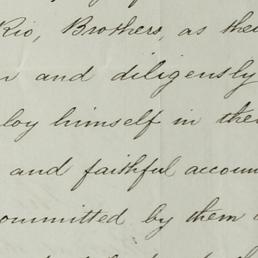 Rio, Brothers, as their
and diligensly
himself in
and faithful accoun
committed by them